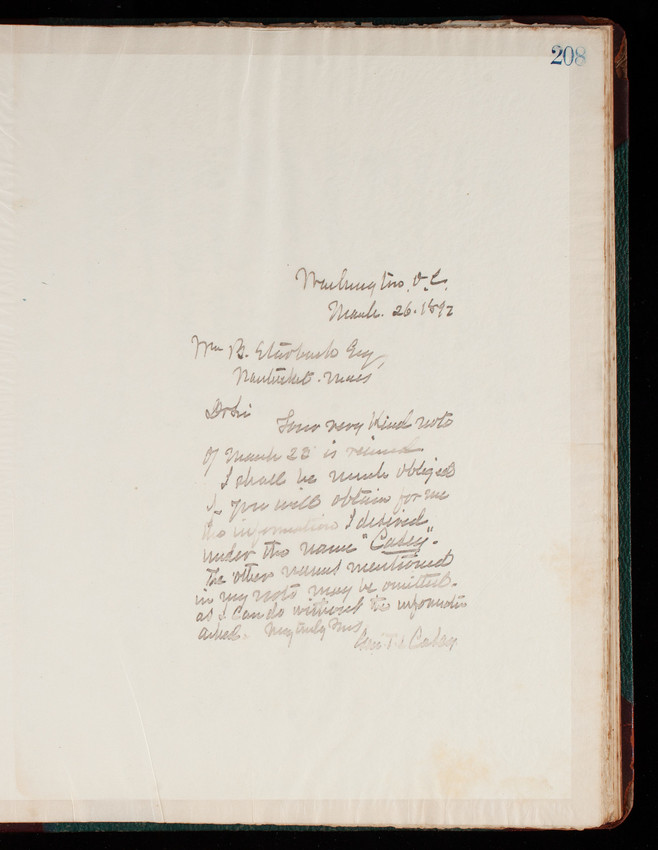 208
Washington, D.C.
March. 26. 1892
Wm B. Starbuck Esq,
Nantucket. Mass
Dr Sir Your very kind note
of March 23 is received
I shall be much obliged
if you will obtain for me
the information I desired
under the name "Casey".
The other names mentioned
in my note may be omitted.
as I can do without the information
asked. Very truly Yours
Casey